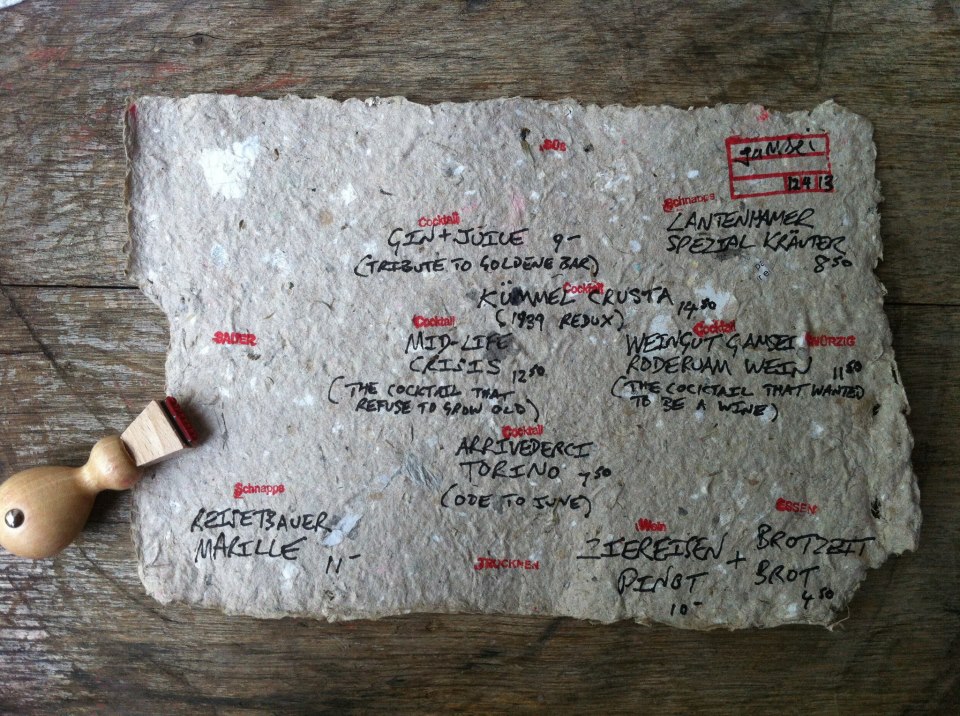 SÜSS
gamsei
12 4 13
Schnapps
LANTENHAMER
SPEZIAL KRÄUTER
8 50
Cocktail
GIN + JUICE 9-
(TRIBUTE TO GOLDENE BAR)
Cocktail
KÜMMEL CRUSTA 14 50
(1939 REDUX)
SAUER
Cocktail
MID-LIFE
CRISIS 12 50
(THE COCKTAIL THAT
REFUSE TO GROW OLD)
Cocktail
WÜRZIG
WEINGUT GAMSEI
RODERUAM WEIN 11 50
(THE COCKTAIL THAT WANTED
TO BE A WINE)
Cocktail
ARRIVEDERCI
TORINO 7 50
(ODE TO JUNE)
Schnapps
REISETBAUER
MARILLE 11-
TROCKEN
Wein
ZIEREISEN +
PINOT
10-
ESSEN
BROTZEIT
BROT
4 50